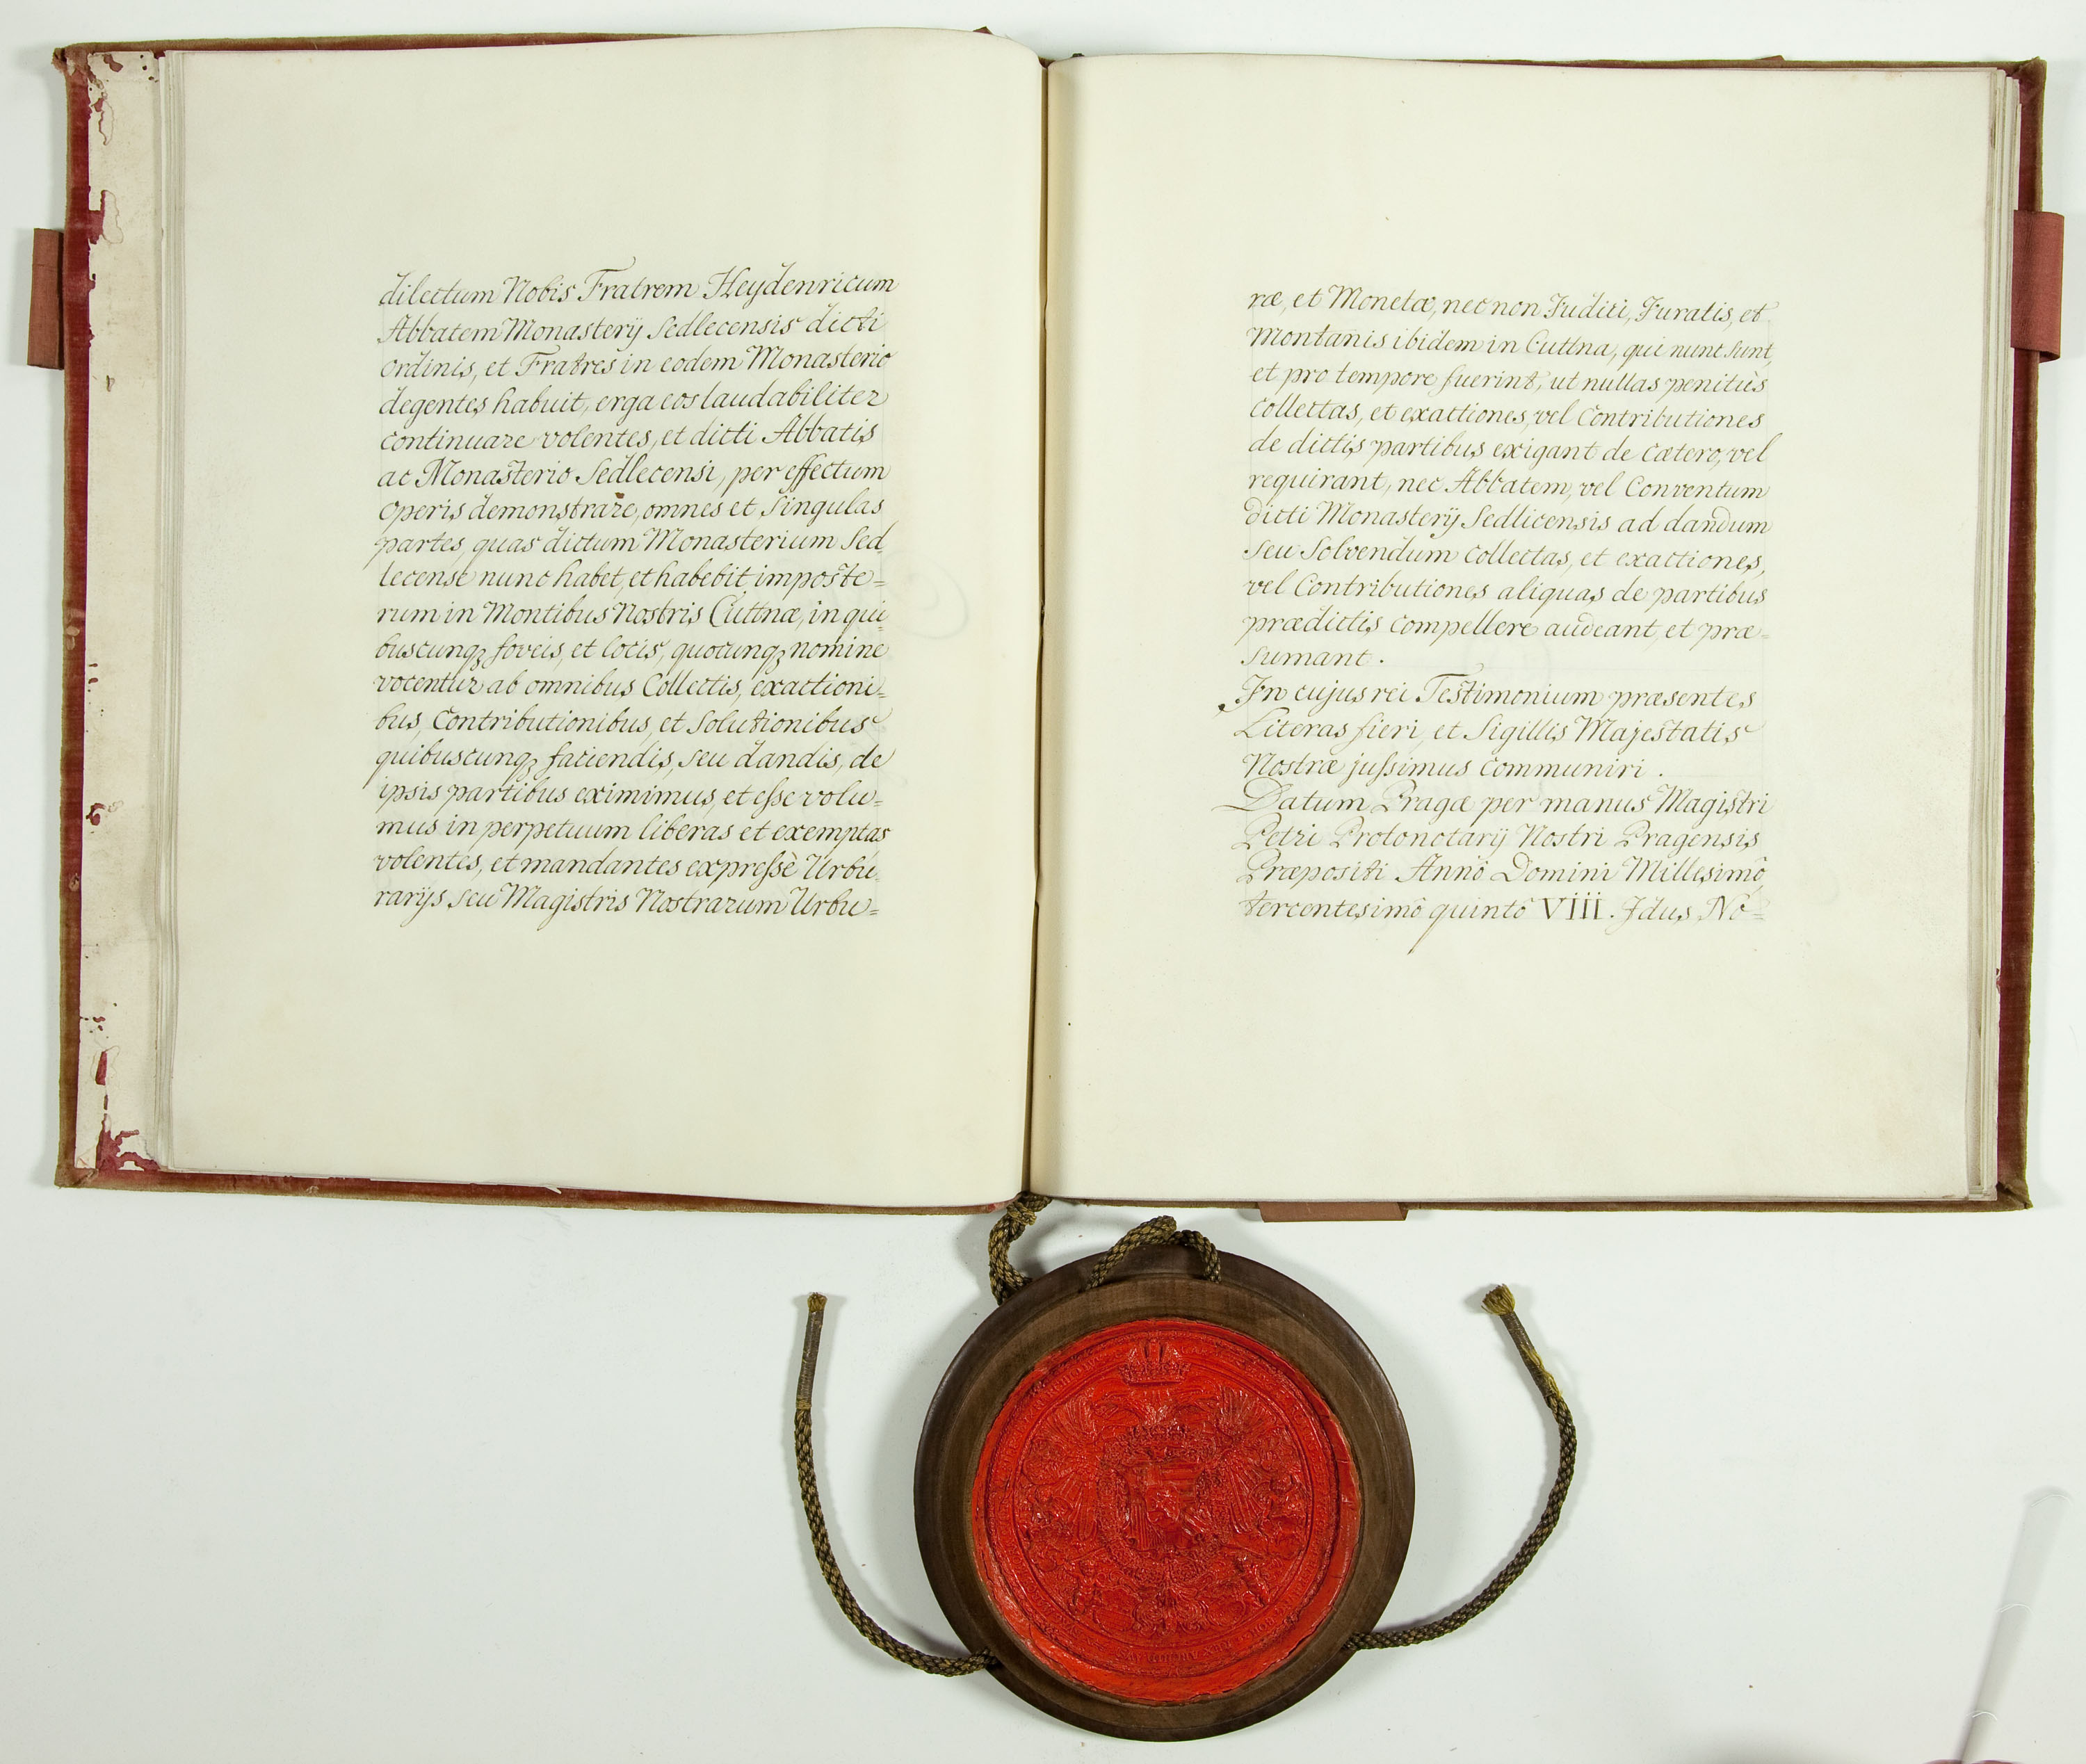 dilectum Nobis Fratrem Heydenricum
Abbatem Monasterij Sedlecensis dicti
ordinis, et Fratres in eodem Monasterio
degentes habuit, erga eos laudabiliter
continuare volentes, et dicti Abbatis
ac Monasterio Sedlecensi, per effectum
operis demonstrare, omnes et Singulas
partes, quas dictum Monasterium Sed,
lecense nunc habet, et habebit, imposte=
rum in Montibus Nostris Cuttnæ, in qui=
buscunqꝫ foveis, et locis, quocunqꝫ nomine
vocentur ab omnibus Collectis, exactioni=
bus, Contributionibus, et Solutionibus
quibuscunqꝫ faciendis, seu dandis, de
ipsis partibus eximimus, et eſse volu=
mus in perpetuum liberas et exemptas
volentes, et mandantes expreſsè Urbu,
rarijs seu Magistris Nostrarum Urbu=
ræ, et Monetæ, nec non Judici, Juratis, et
Montanis ibidem in Cuttna, qui nunc sunt,
et pro tempore fuerint, ut nullas penitùs
Collectas, et exactiones, vel Contributiones
de dictis partibus exigant de cætero, vel
requirant, nec Abbatem, vel Conventum
dicti Monasterij Sedlicensis ad dandum
seu Solvendum Collectas, et exactiones,
vel Contributiones aliquas de partibus
prædictis compellere audeant, et præ=
sumant.
In cujus rei Testimonium præsentes
Literas fieri, et Sigillis Majestatis
Nostræ juſsimus communiri.
Datum Pragæ per manus Magistri
Petri Protonotarij Nostri Pragensis
Præpositi Annô Domini Millesimô
tercentesimô quintô VIII. Idus No=